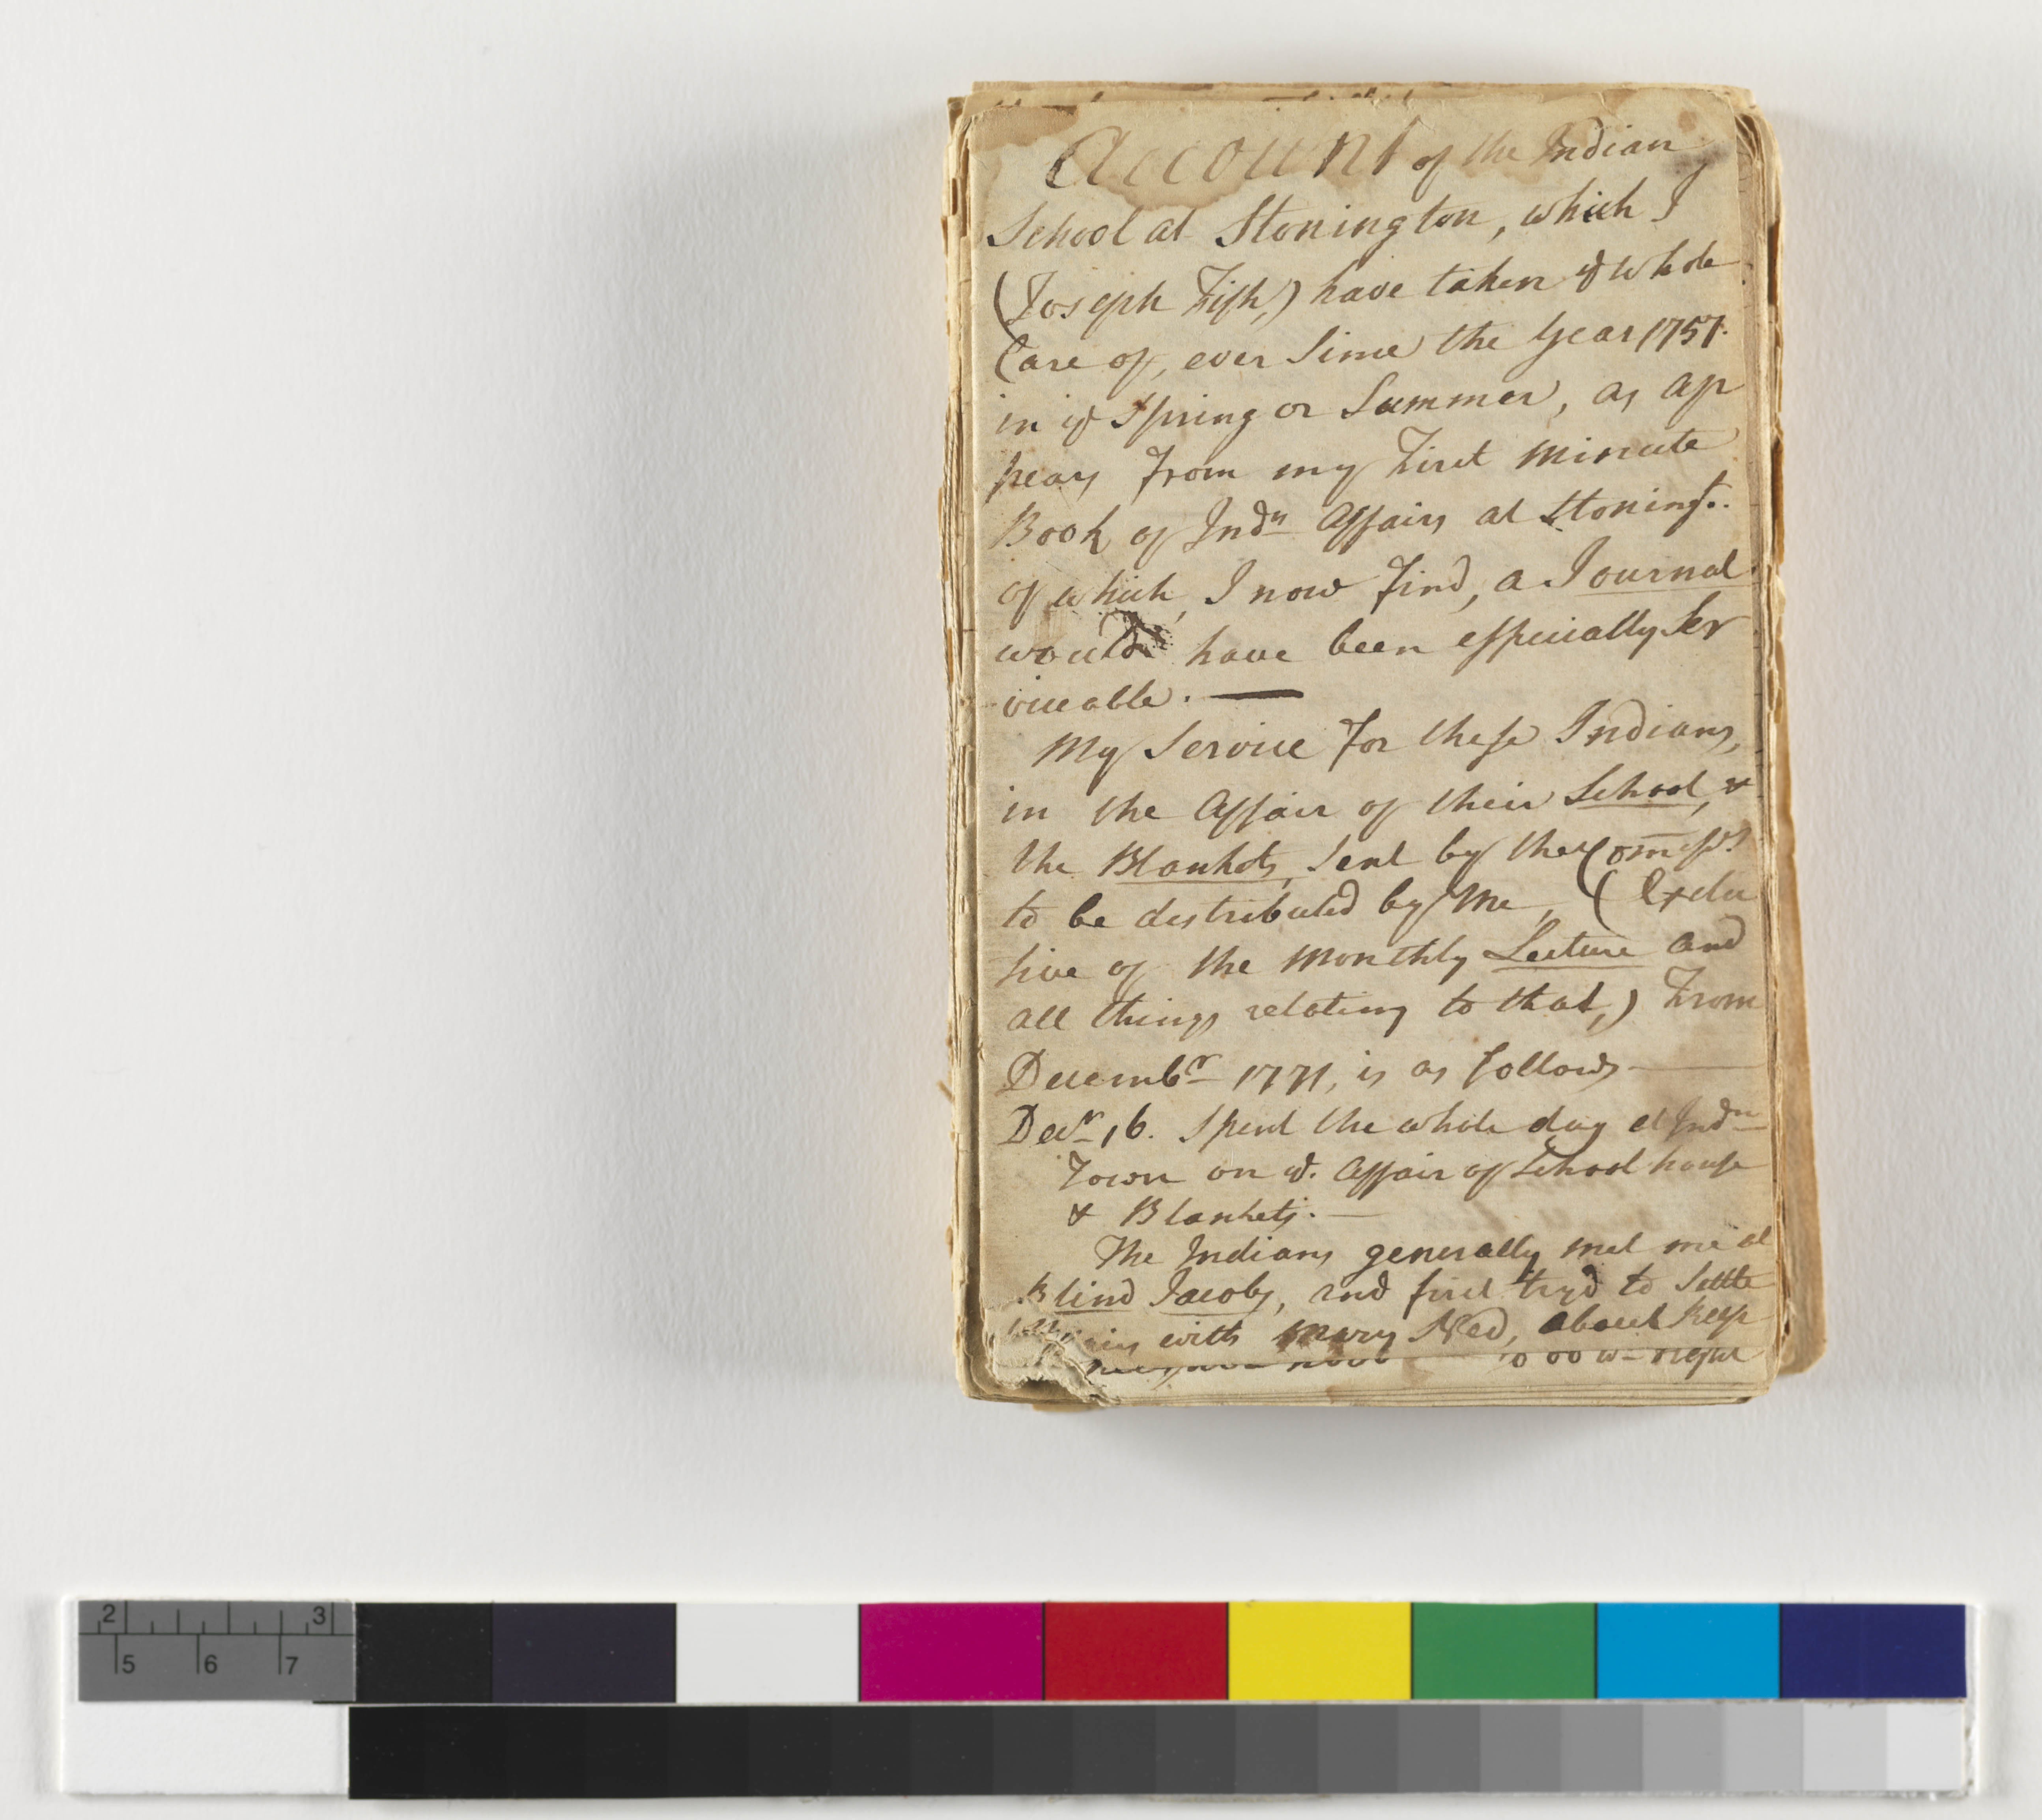 Account of the Indian
School at Stonington, which I
(Joseph Fish,) have taken ye whole
Care of, ever Since the Year 1757.
in ye Spring or Summer, as ap
pears from my First minute
Book of Indn Affairs at Stoningt.
of which, I now find, a Journal
would have been especially Ser
viceable. —
My Service for these Indians,
in the Affair of their School, &
the Blankets, Sent by the Comissrs
to be distributed by Me, (Exclu
sive of the monthly Lecture and
all things relating to that,) From
Decembr 1771, is as follows —
Decr 16. Spent the whole day at Indn
Town on ye. Affair of School house
& Blankets. —
The Indians generally met me at
Blind Jacobs, and first tryd to Settle
with Mary Ned, about keep
2 3
5 6 7